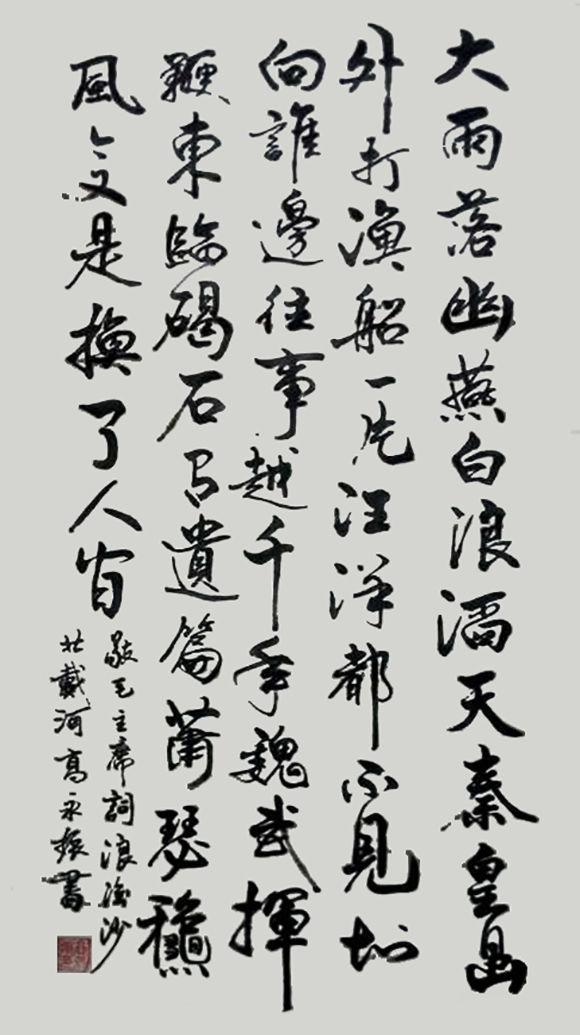 大雨落幽燕白浪滔天秦皇島
外打漁船一片汪洋都不見知
向誰邊往事越千年魏武揮
鞭東臨碣石有遺篇蕭瑟龝
風今又是換了人間
敬毛主席詞浪淘沙
北戴河高永振書